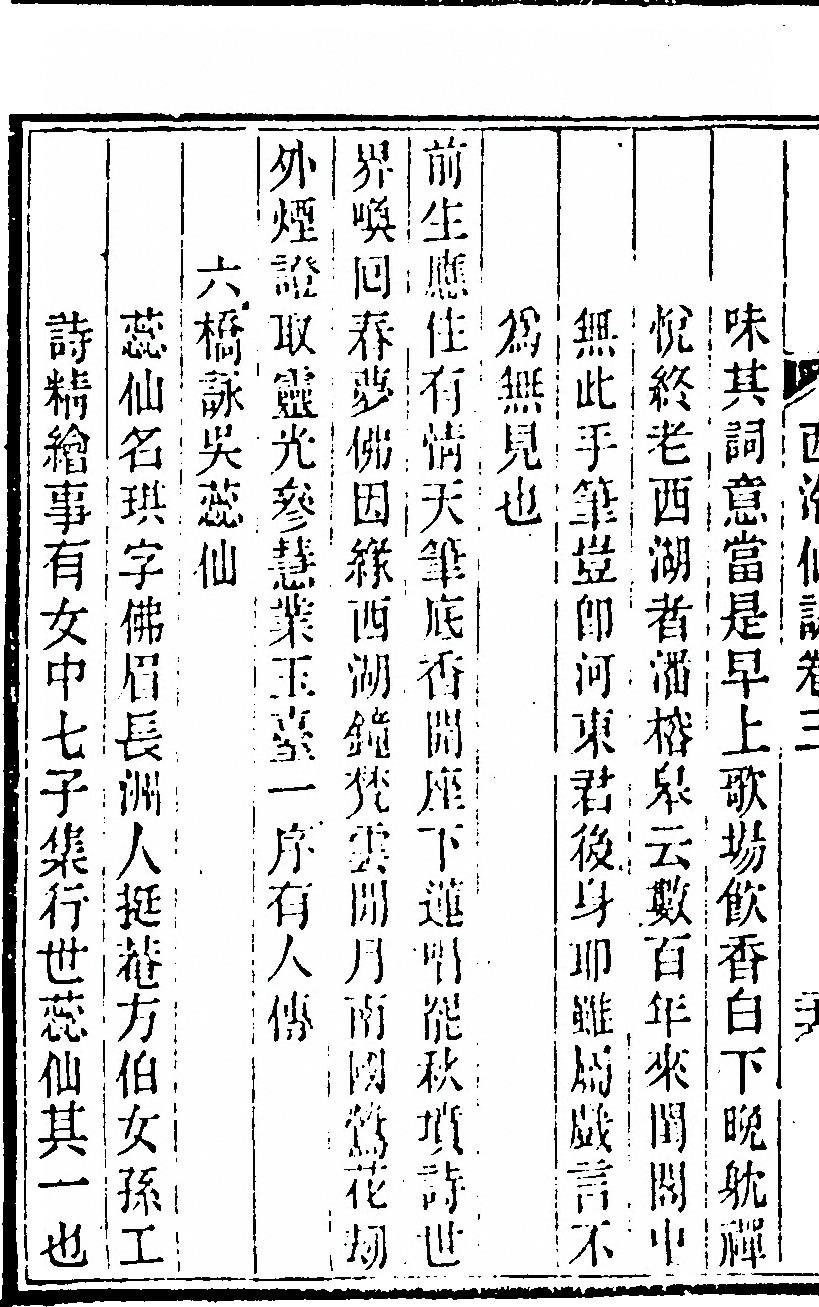 西泠仙詠卷三
味其詞意當是早上歌場飲香白下晚躭禪
悅終老西湖者潘榕臯云數百年來閨閣中
無此手筆豈卽河東君後身耶雖屬戲言不
爲無見也
前生應住有情天筆底香開座下蓮唱罷秋墳詩世
界喚回春夢佛因緣西湖鐘梵雲開月南國鶯花劫
外煙證取靈光參慧業玉臺一序有人傳
六橋詠吳蕊仙
蕊仙名琪字佛眉長洲人挺菴方伯女孫工
詩精繪事有女中七子集行世蕊仙其一也